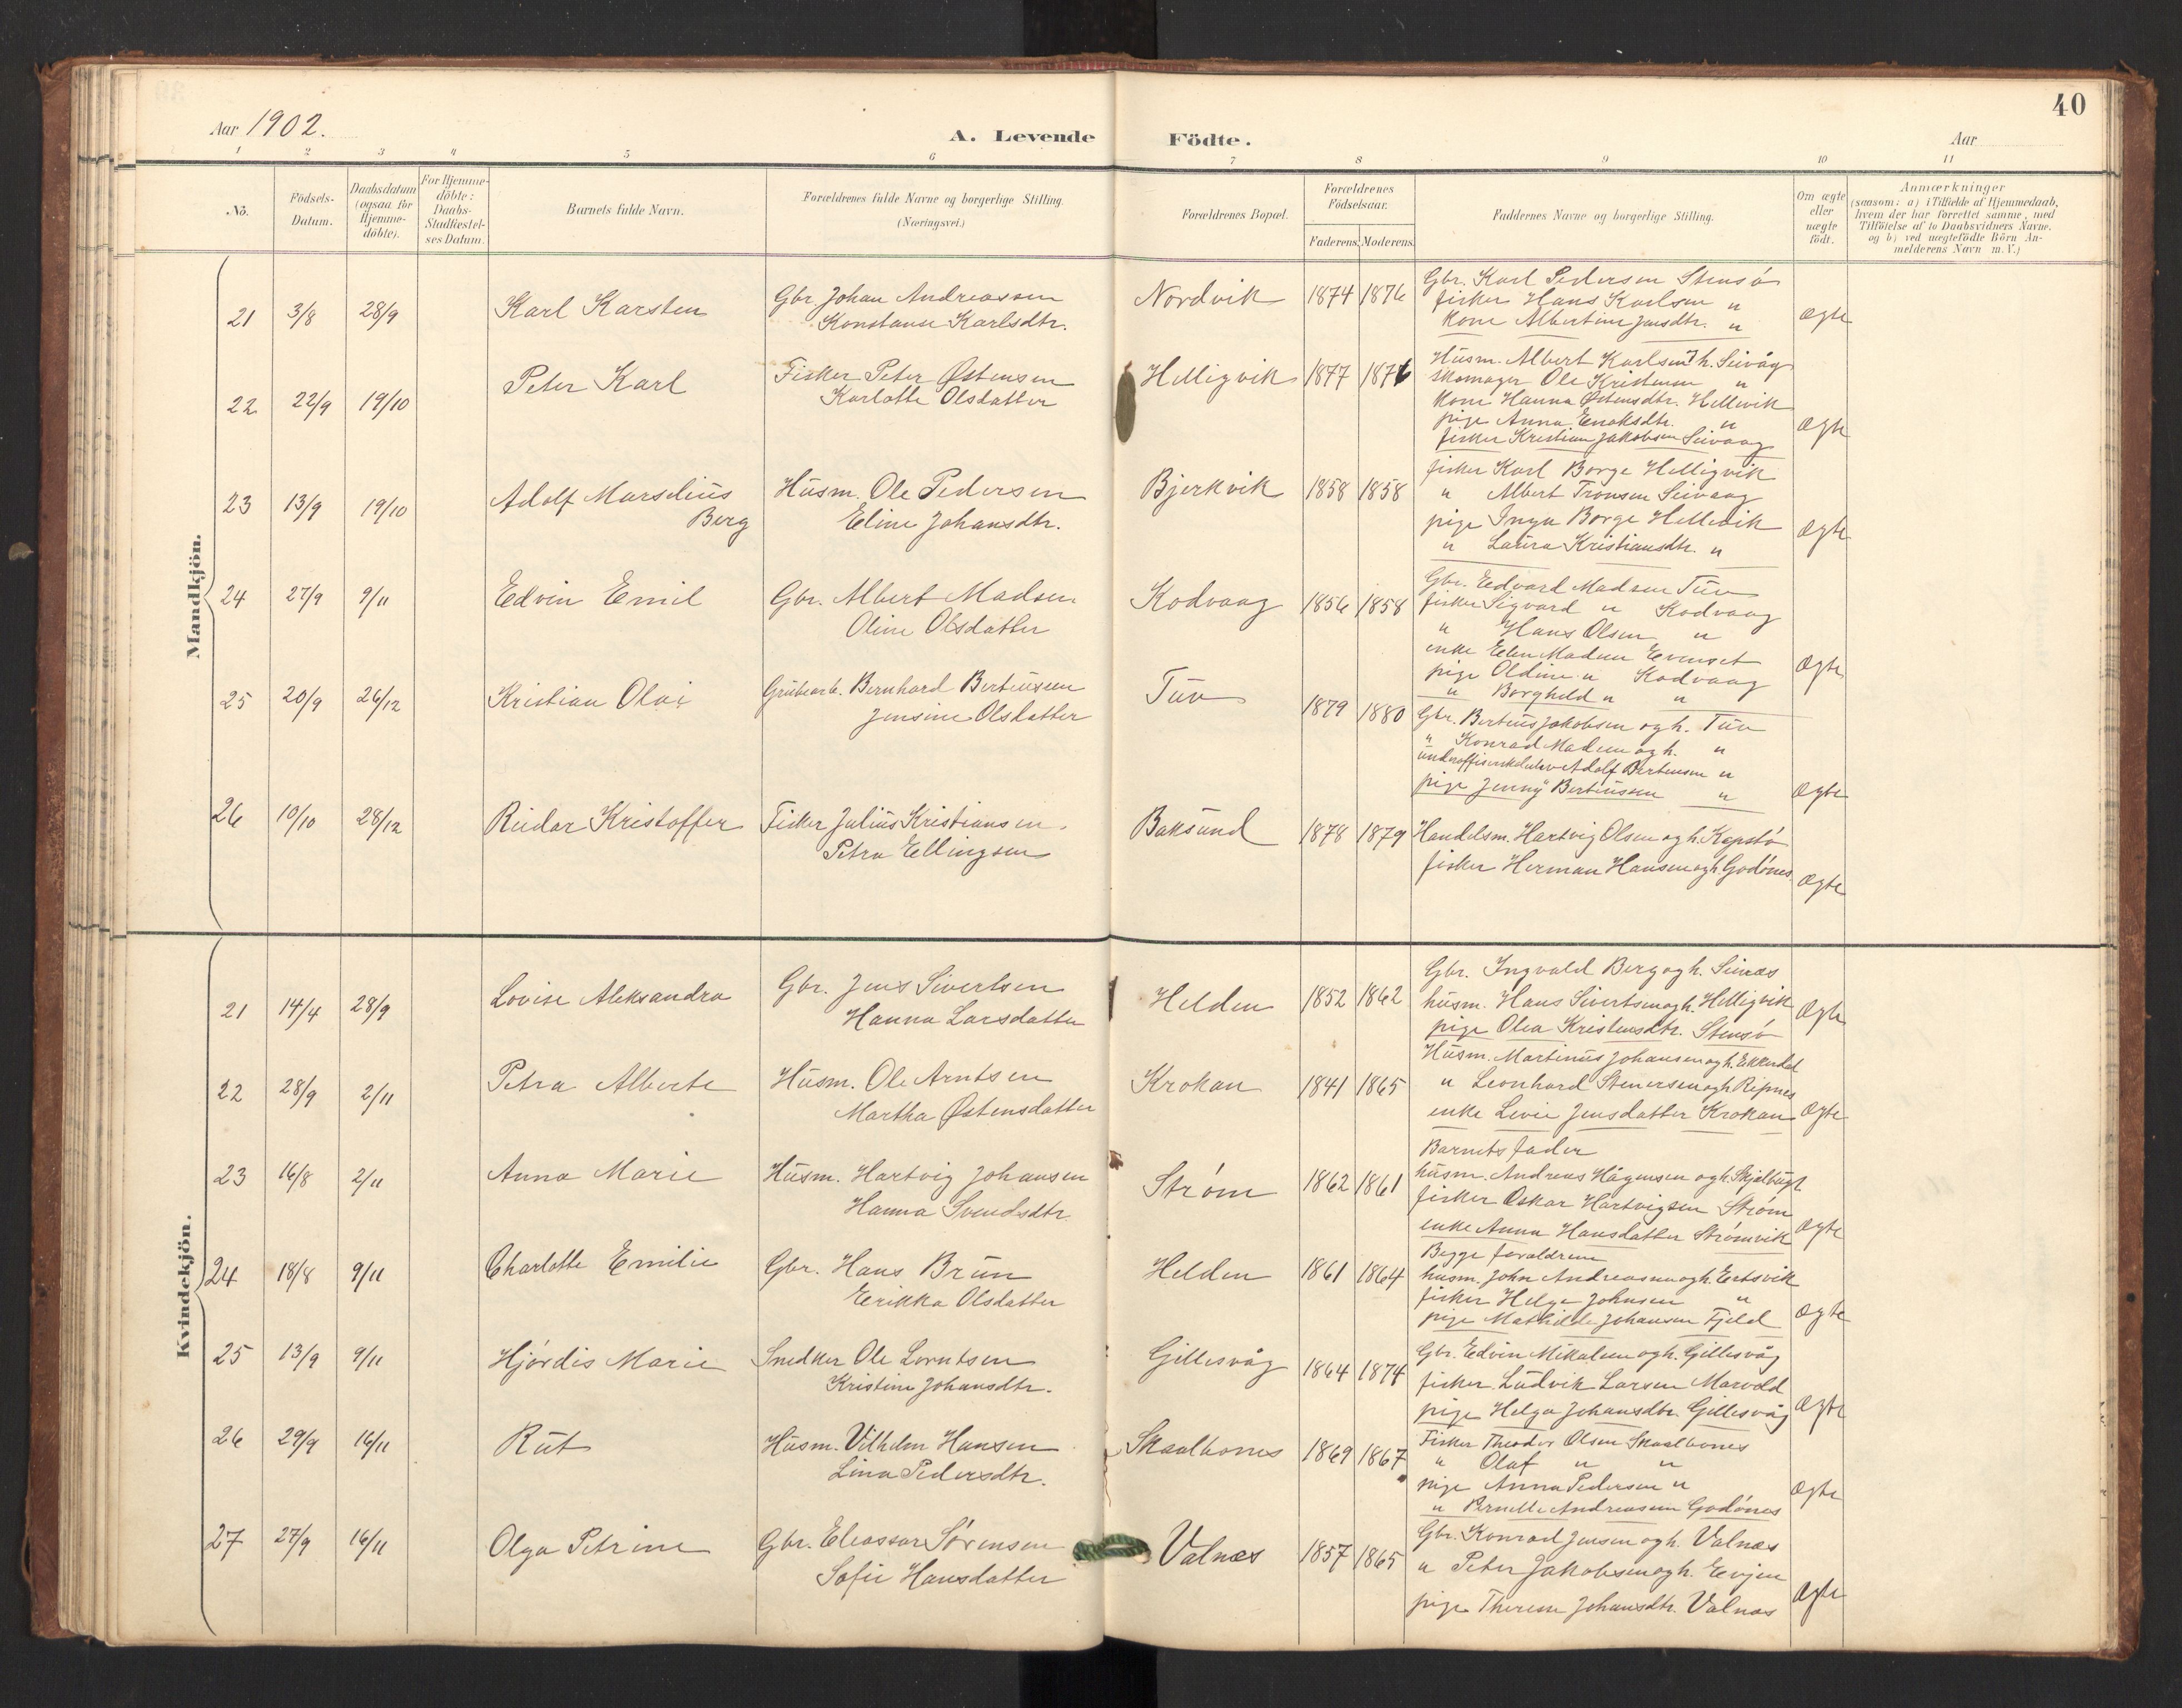 Aar 1902.
A. Levende Födte.
Aar
40
1 2 3 4 5 6 7 8 9 10 11
No.
Födsels-Datum.
Daabsdatum (ogsaa for Hjemme-döbte).
For Hjemme-döbte: Daabs-Stadfæstel-ses Datum.
Barnets fulde Navn.
Forældrenes fulde Navne og borgerlige Stilling. (Næringsvei.)
Forældrenes Bopæl.
Forældrenes Födselsaar.
Faderens. Moderens.
Faddernes Navne og borgerlige Stilling.
Om ægte eller uægte födt.
Anmærkninger
(saasom: a) i Tilfælde af Hjemmedaab,
hvem der har forrettet samme, med
Tilföielse af to Daabsvidners Navne.
og b) ved uægtefödte Börn An-
melderens Navn m. V.)
Mandkjön.
21 3/8 28/9 Karl Karsten
Gbr. Johan Andreassen
Konstanse Karlsdtr.
Nordvik 1874 1876
Gbr. Karl Pedersen Stensø
fisker Hans Karlsen "
kone Albertine Jensdtr. "
Ægte
22 22/9 19/10 Peter Karl
Fisker Peter Østensen
Karlotte Olsdatter
Helligvik 1877 1876
Husm. Albert Karlsen Th. Seivåg
skomager Ole Kristensen "
kone Hanna Østensdtr. Hellevik
pige Anna Enoksdtr. "
fisker Kristian Jakobsen Seivaag
Ægte
23 13/9 19/10 Adolf Marselius
Berg
Husm. Ole Pedersen
Eline Johansdtr.
Bjerkvik 1858 1858
fisker Karl Borge Helligvik
" Albert Tronsen Seivaag
pige Inga Borge Hellevik
" Laura Kristiansdtr. "
Ægte
24 27/9 9/11 Edvin Emil
Gbr. Albert Madsen
Oline Olsdatter
Kodvaag 1856 1858
Gbr. Edvard Madsen Tuv
fisker Sigvard " Kodvaag
" Hans Olsen "
enke Elen Madsen Evenset
pige Oldine " Kodvaag
" Borghild " "
Ægte
25 20/9 26/12 Kristian Olai
Grubearb. Bernhard Berteussen
Jensine Olsdatter
Tuv 1879 1880
Gbr. Berteus Jakobsen og h. Tuv
" Konrad Madsen og h. "
underoffiserskoleelev Adolf Berteusen "
pige Jenny Berteussen "
Ægte
26 10/10 28/12 Reidar Kristoffer
Fisker Julius Kristiansen.
Petra Ellingsen
Baksund 1878 1879
Handelsm. Hartvig Olsen og h. Kapstø
fisker Herman Hansen og h. Godønes
Ægte
Kvindekjön.
21 14/4 28/9 Lovise Aleksandra
Gbr. Jens Sivertsen
Hanna Larsdatter
Helden 1852 1862
Gbr. Ingvald Berg og h. Seinæs
husm. Hans Sivertsen og h. Helligvik
pige Olea Kristensdtr. Stensø
Ægte
22 28/9 2/11 Petra Alberte
Husm. Ole Arntsen
Martha Østensdatter
Krokan 1841 1865
Husm. Martinus Johansen og h.
" Leonhard Stenersen og h. Repnes
enke Jensdatter Krokan
Ægte
23 16/8 2/11 Anna Marie
Husm. Hartvig Johansen
Hanna Svendsdtr.
Strøm 1862 1861
Barnets fader
husm. Andreas Hågensen og h. Skjelbugt
fisker Oskar Hartvigsen Strøm
enke Anna Hansdatter Strømvik
Ægte
24 18/8 9/11 Charlotte Emilie
Gbr. Hans Brun
Erikka Olsdatter
Helden 1861 1864
Begge foreldrene
husm. John Andreasen og h. Ertsvik
fisker Helge Johnsen "
pige Mathilde Johansen Fjeld
Ægte
25 13/9 9/11 Hjørdis Marie
Snedker Ole Lorntsen
Kristine Johansdtr.
Gillesvåg 1864 1874
Gbr. Edvin Mikalsen og h. Gillesvåg
fisker Ludvik Larsen Marvold
pige Helga Johansdtr. Gillesvåg
Ægte
26 29/9 16/11 Rut
Husm. Vilhelm Hansen
Lina Pedersdtr.
Skaalbones 1869 1867
Fisker Theodor Olsen Skaalbones
" Olaf " "
pige Anna Pedersen "
" Andreassen Godønes
Ægte
27 27/9 16/11 Olga Petrine
Gbr. Eleassar Sørensen
Sofie Hansdatter
Valnæs 1857 1865
Gbr. Konrad Jensen og h. Valnæs
" Peter Jakobsen og h. Evjen
pige Therese Johansdtr. Valnæs
Ægte